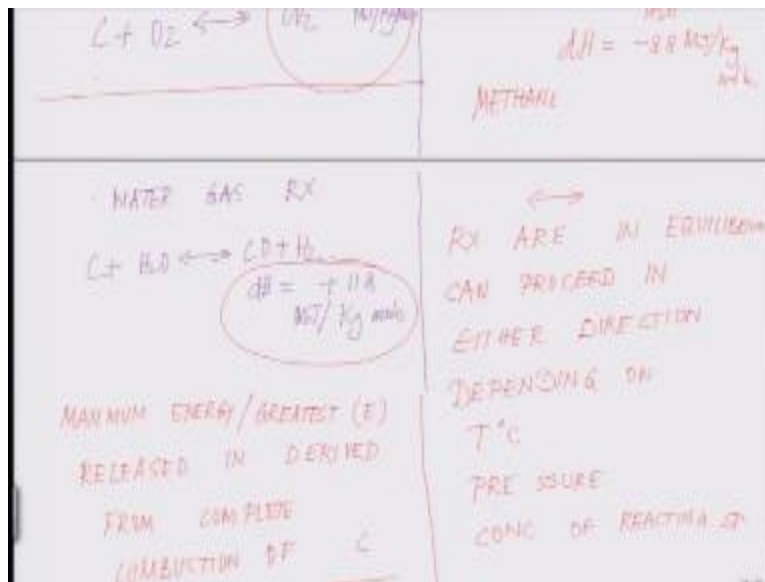 C + O2 <-->
MJ/Kg
dH = -88 MJ/Kg
METHANE
WATER GAS RX
C + H2O <--> CO + H2
dH = + 118
MJ/Kg mole
MAXIMUM ENERGY/GREATEST (E)
RELEASED IN DERIVED
FROM COMPLETE
COMBUSTION OF C
<-->
RX ARE IN EQUILIBRIUM
CAN PROCEED IN
EITHER DIRECTION
DEPENDING ON
T°C
PRESSURE
CONC OF REACTING